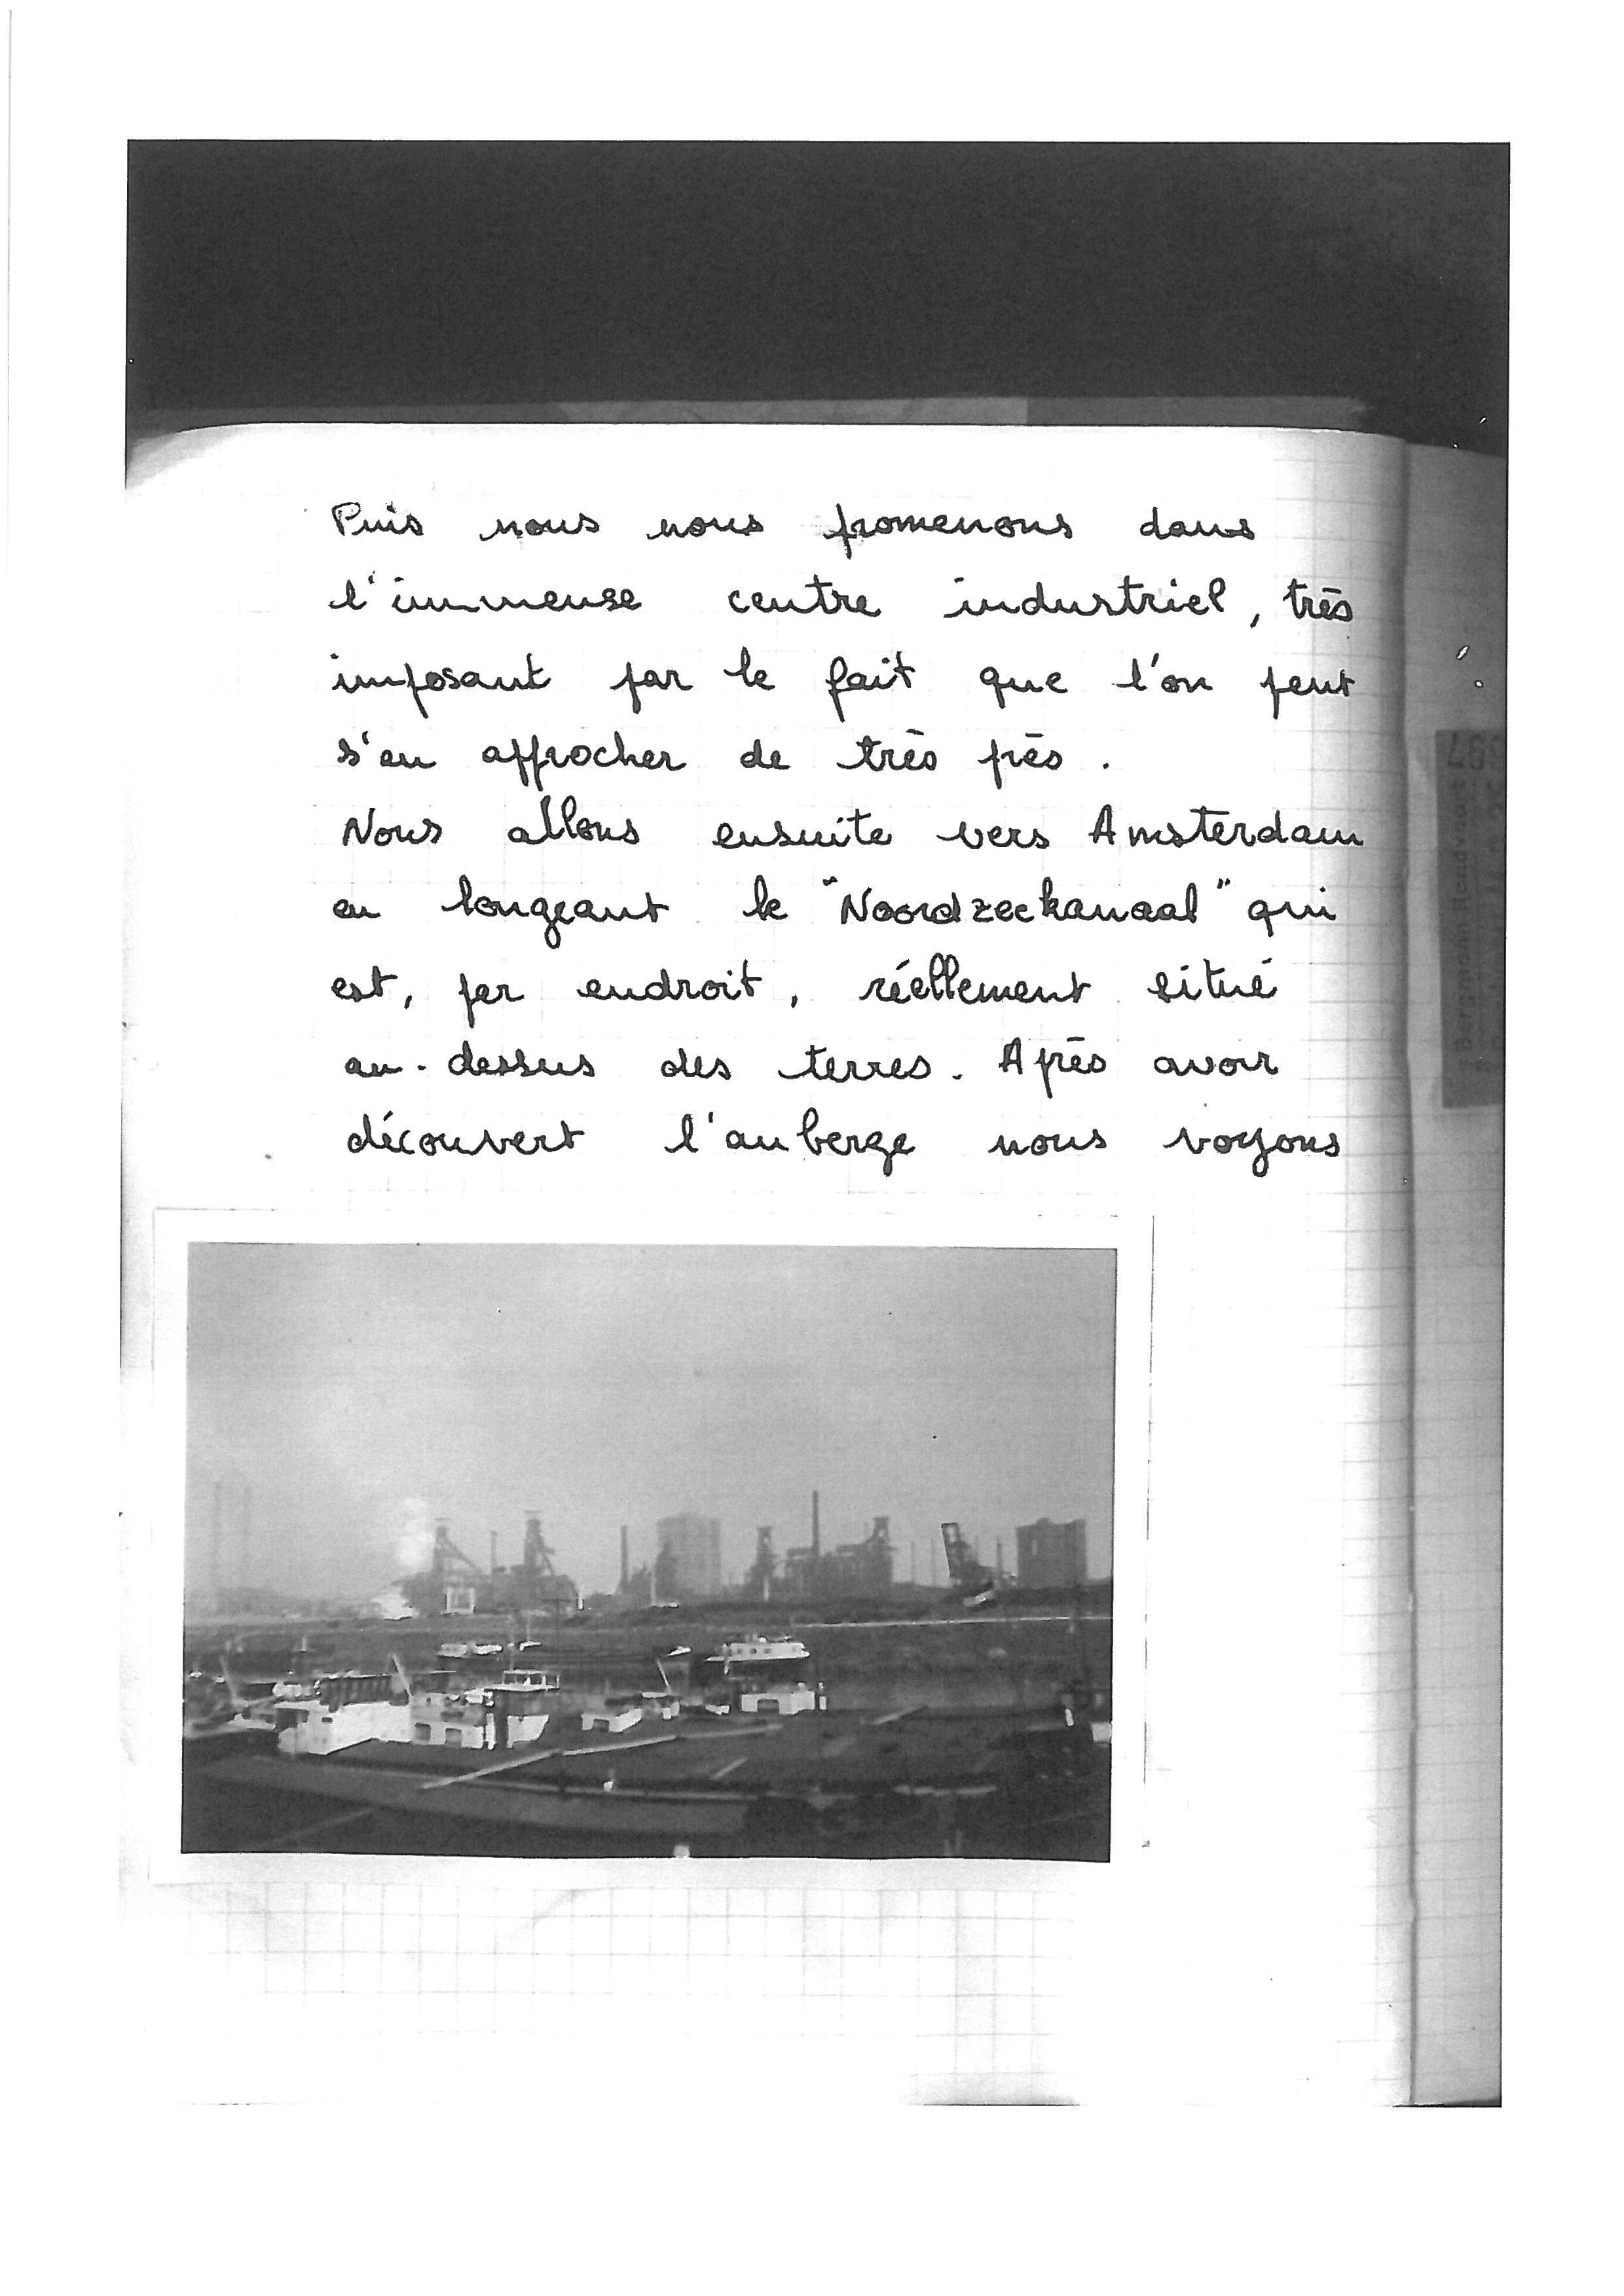 Puis nous nous promenons dans
l'immense centre industriel, très
imposant par le fait que l'on peut
s'en approcher de très près.
Nous allons ensuite vers Amsterdam
en longeant le "Noordzeekanaal" qui
est, par endroit, réellement situé
au-dessus des terres. Après avoir
découvert l'auberge nous voyons